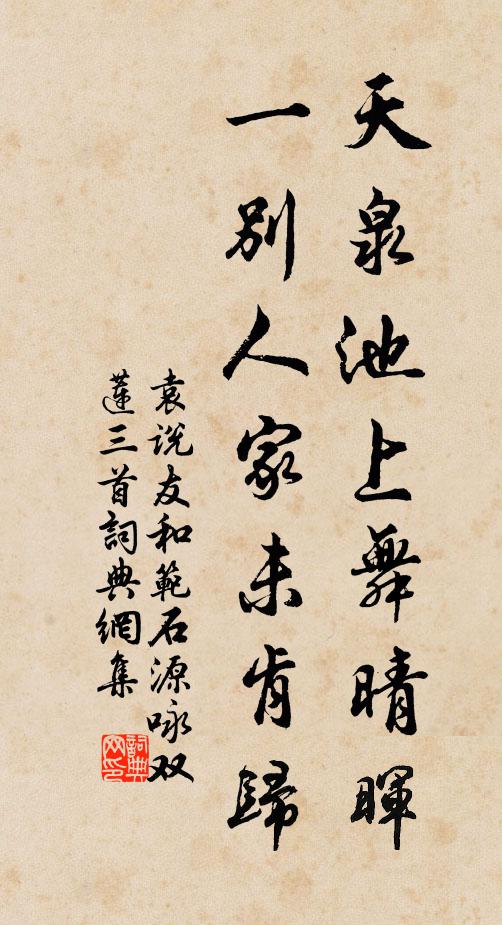 天泉池上舞晴暉
一別人家未肯歸
袁説友和範石源咏双
蓮三首詞典網集
詞典
网印